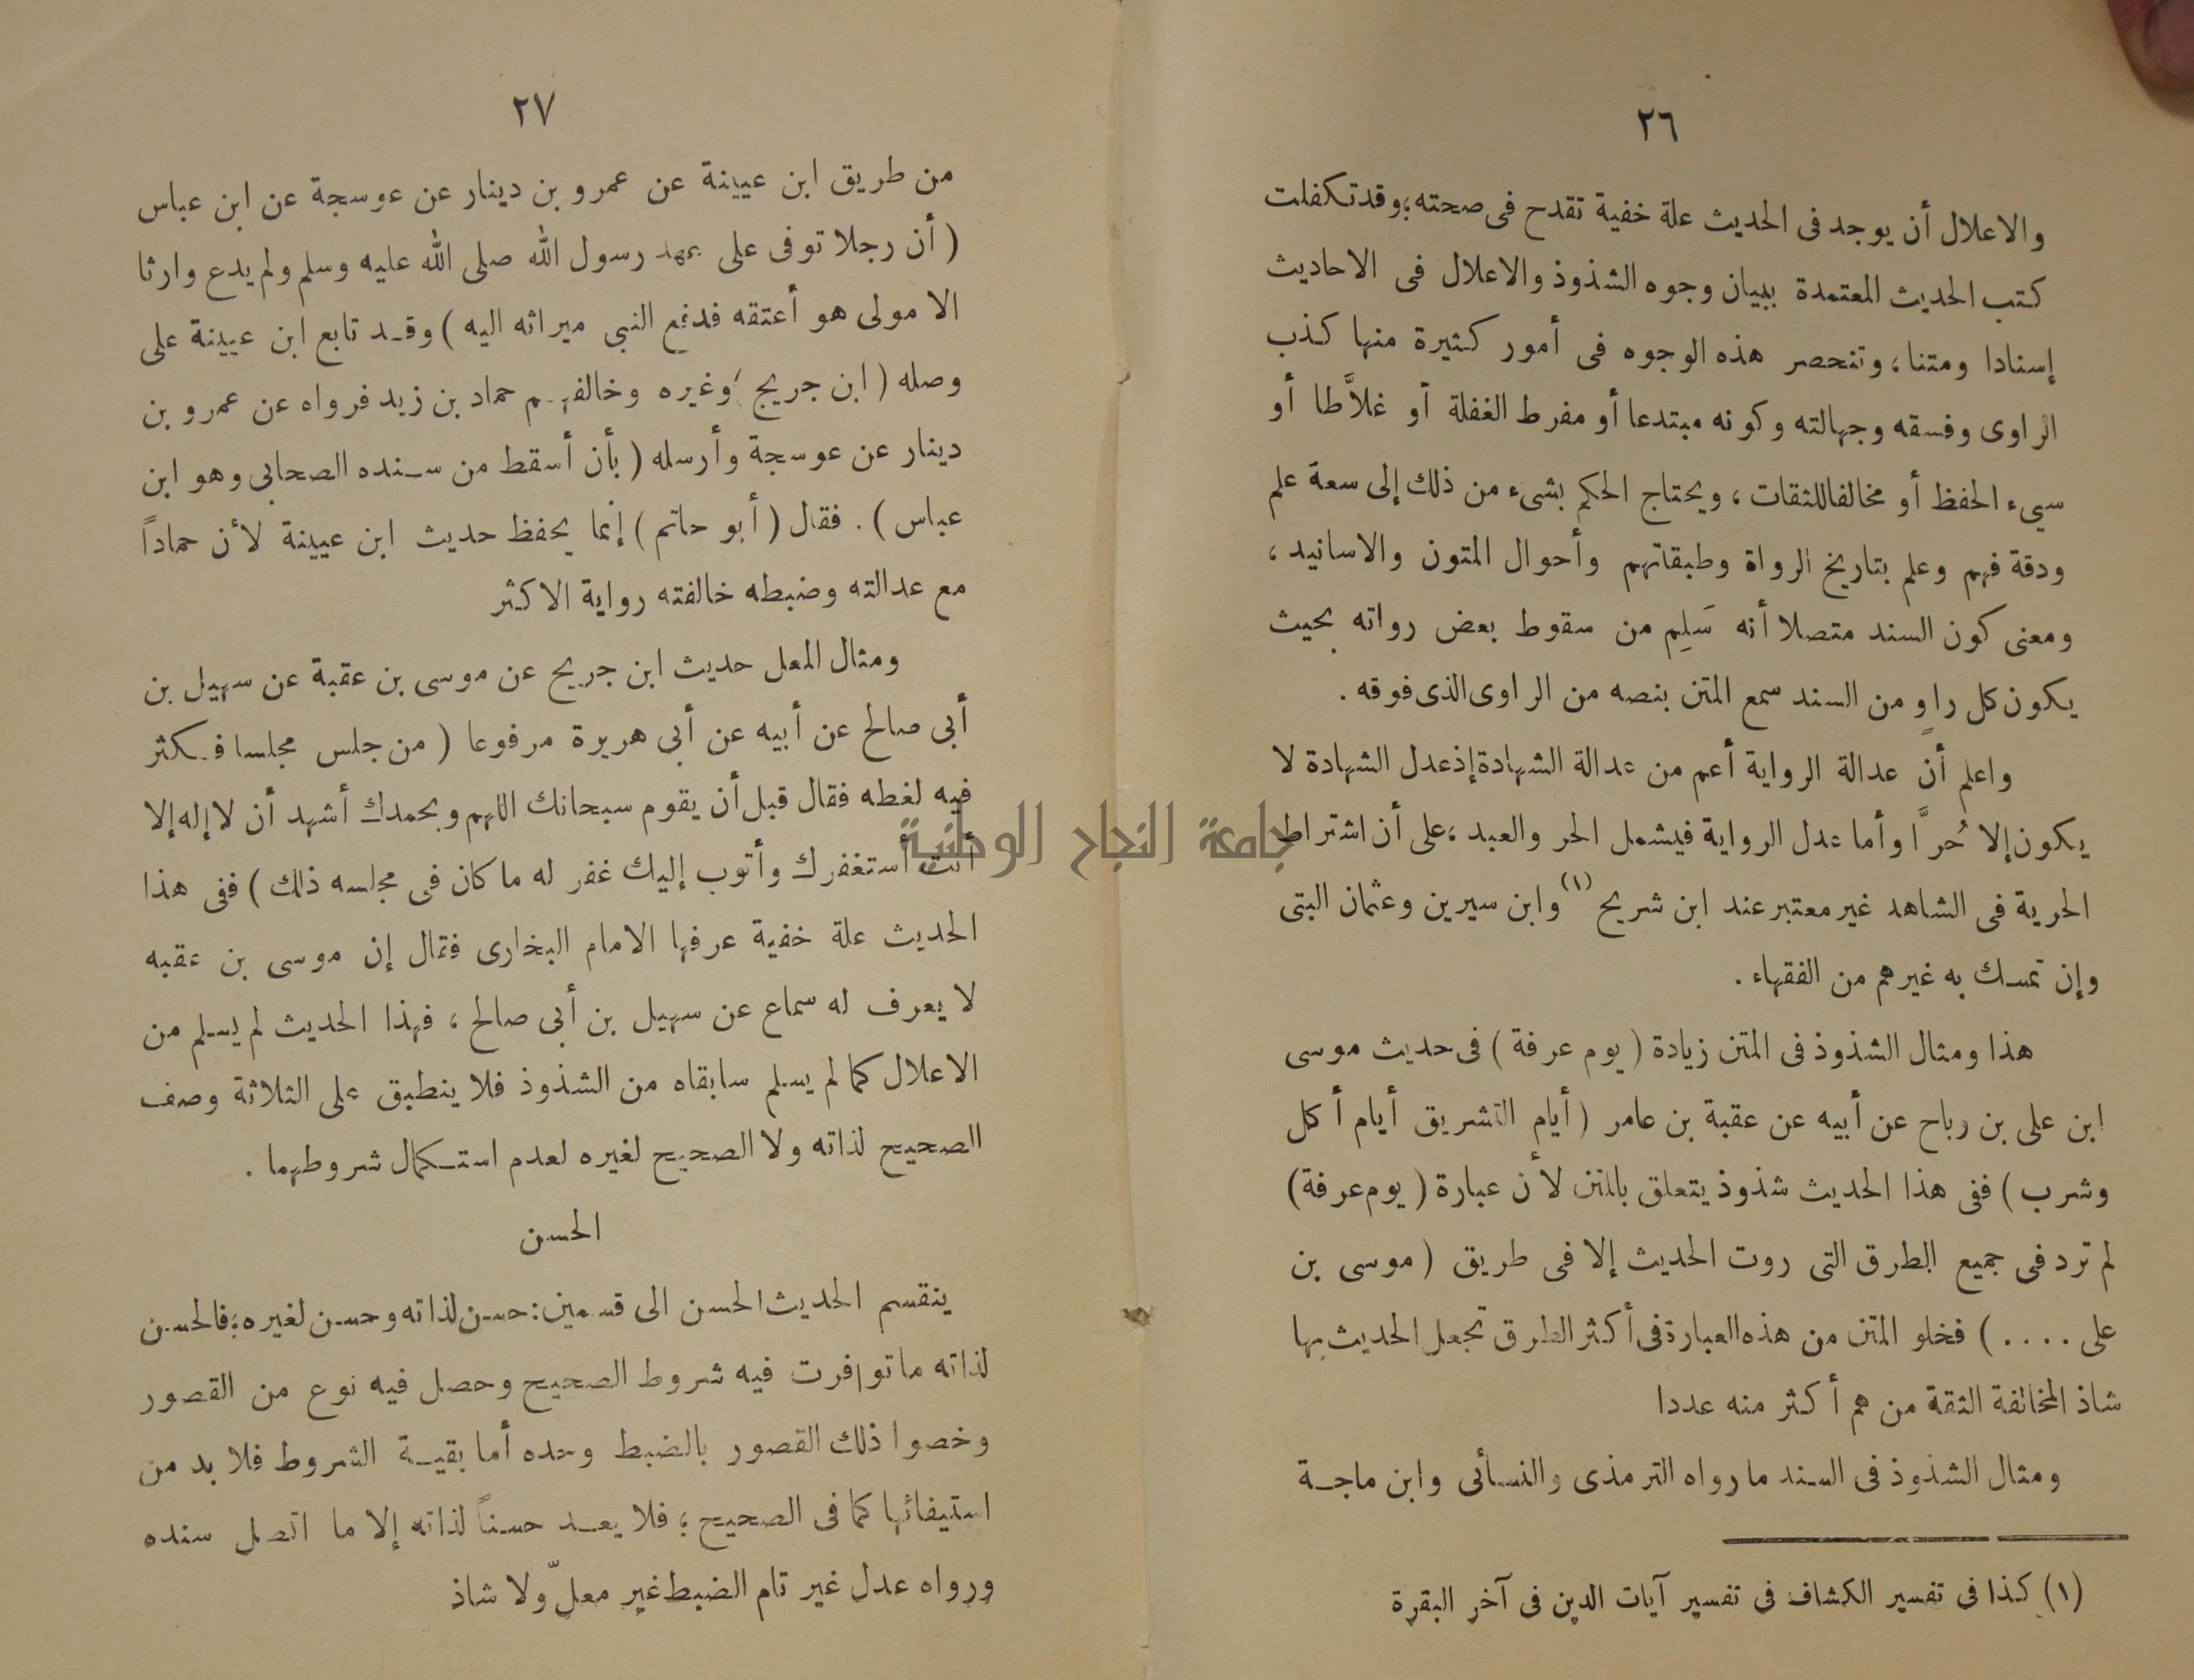 ٢٦
والاعلال أن يوجد فى الحديث علة خفية تقدح فى صحته؛ وقد تكفلت
كتب الحديث المعتمدة ببيان وجوه الشذوذ والاعلال فى الاحاديث
إسنادا ومتنا، وتنحصر هذه الوجوه فى أمور كثيرة منها كذب
الراوى وفسقه وجهالته وكونه مبتدعا أو مفرط الغفلة أو غلاَّطا أو
سيىء الحفظ أو مخالفا للثقات، ويحتاج الحكم بشىء من ذلك إلى سعة علم
ودقة فهم وعلم بتاريخ الرواة وطبقاتهم وأحوال المتون والاسانيد،
ومعنى كون السند متصلا أنه سَلِم من سقوط بعض رواته بحيث
يكون كل راوٍ من السند سمع المتن بنصه من الراوى الذى فوقه .
واعلم أن عدالة الرواية أعم من عدالة الشهادة إذ عدل الشهادة لا
يكون إلا حُرًّا وأما عدل الرواية فيشمل الحر والعبد، على أن اشتراط
الحرية فى الشاهد غير معتبر عند ابن شريح (١) وابن سيرين وعثمان البتى
وإن تمسك به غيرهم من الفقهاء .
هذا ومثال الشذوذ فى المتن زيادة ( يوم عرفة ) فى حديث موسى
ابن على بن رباح عن أبيه عن عقبة بن عامر ( أيام التشريق أيام أكل
وشرب ) ففى هذا الحديث شذوذ يتعلق بالمتن لأن عبارة ( يوم عرفة )
لم ترد فى جميع الطرق التى روت الحديث إلا فى طريق ( موسى بن
على . . . . ) فخلو المتن من هذه العبارة فى أكثر الطرق تجعل الحديث بها
شاذ المخالفة الثقة من هم أكثر منه عددا
ومثال الشذوذ فى السند ما رواه الترمذى والنسائى وابن ماجة
(١) كذا فى تفسير الكشاف فى تفسير آيات الدين فى آخر البقرة
٢٧
من طريق ابن عيينة عن عمرو بن دينار عن عوسجة عن ابن عباس
( أن رجلا توفى على عهد رسول الله صلى الله عليه وسلم ولم يدع وارثا
الا مولى هو أعتقه فدفع النبى ميراثه اليه ) وقد تابع ابن عيينة على
وصله ( ابن جريج ) وغيره وخالفهم حماد بن زيد فرواه عن عمرو بن
دينار عن عوسجة وأرسله ( بأن أسقط من سنده الصحابى وهو ابن
عباس ) . فقال ( أبو حاتم ) إنما يحفظ حديث ابن عيينة لأن حماداً
مع عدالته وضبطه خالفته رواية الاكثر
ومثال المعل حديث ابن جريج عن موسى بن عقبة عن سهيل بن
أبى صالح عن أبيه عن أبى هريرة مرفوعا ( من جلس مجلسا فكثر
فيه لغطه فقال قبل أن يقوم سبحانك اللهم وبحمدك أشهد أن لا إله إلا
أنت أستغفرك وأتوب إليك غفر له ما كان فى مجلسه ذلك ) ففى هذا
الحديث علة خفية عرفها الامام البخارى فقال إن موسى بن عقبه
لا يعرف له سماع عن سهيل بن أبى صالح ، فهذا الحديث لم يسلم من
الاعلال كما لم يسلم سابقاه من الشذوذ فلا ينطبق على الثلاثة وصف
الصحيح لذاته ولا الصحيح لغيره لعدم استكمال شروطهما .
الحسن
ينقسم الحديث الحسن الى قسمين : حسن لذاته وحسن لغيره؛ فالحسن
لذاته ما توافرت فيه شروط الصحيح وحصل فيه نوع من القصور
وخصوا ذلك القصور بالضبط وحده أما بقية الشروط فلا بد من
استيفائها كما فى الصحيح ؛ فلا يعد حسناً لذاته إلا ما اتصل سنده
ورواه عدل غير تام الضبط غير معلّ ولا شاذ
جامعة النجاح الوطنية